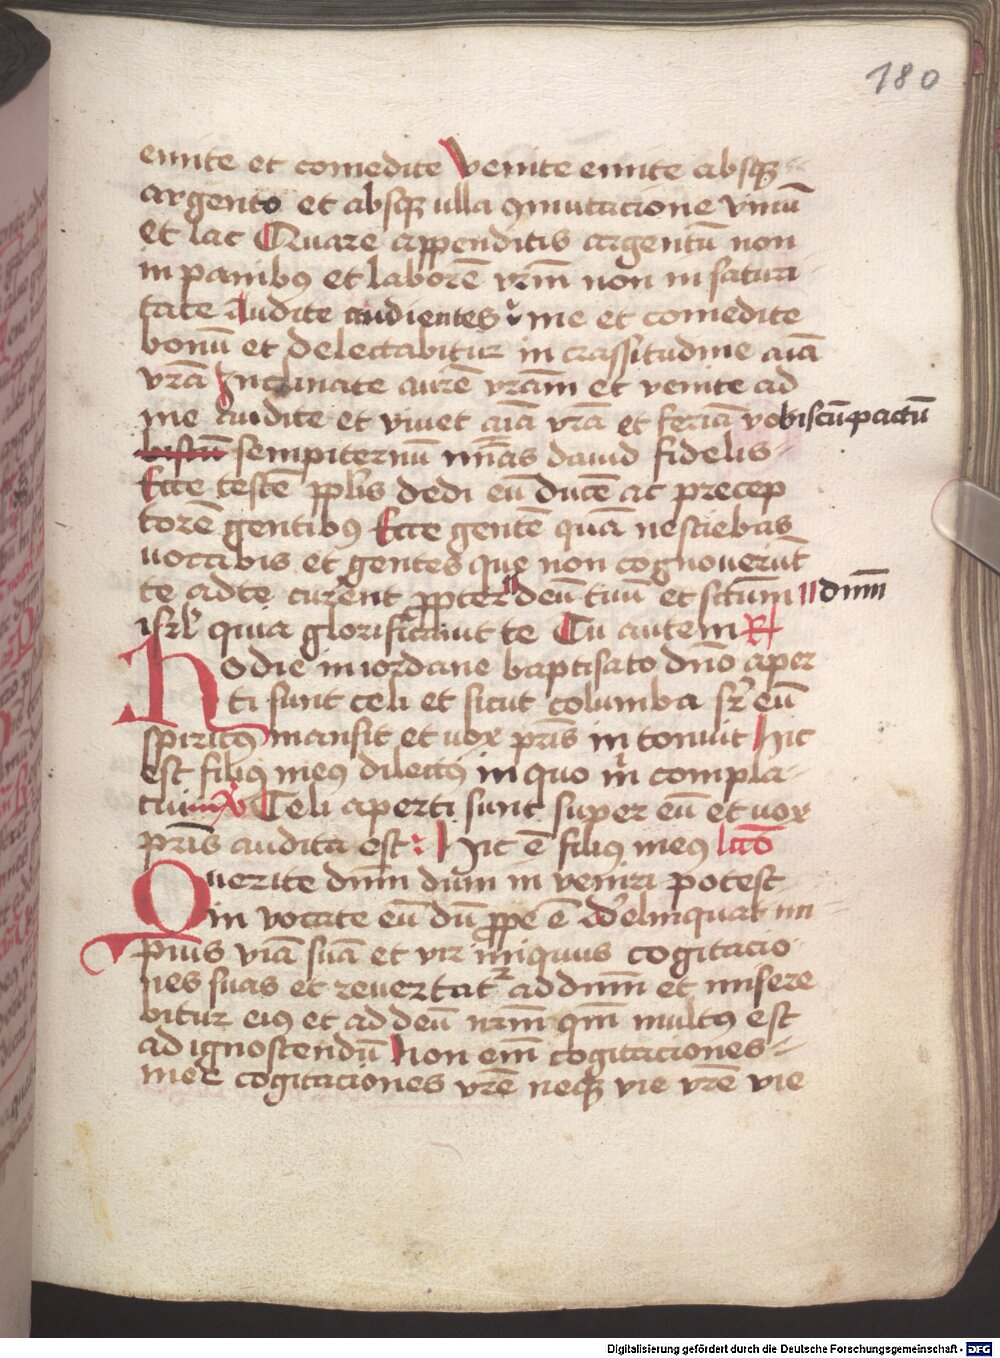 180
emite et comedite Venite emite absqꝫ
argento et absqꝫ ulla ꝯmutacione vinū
et lac Quare appenditis argentū non
in panibꝰ et laborē vr̄m non in saturi
tate Audite audientes me et comedite
bonū et delectabitur in crassitudine aīa
vr̄a Inclinate aurē vr̄am et venite ad
me audite et viuet aīa vr̄a et feriā vobiscū pactū
biscū sempiternū mīas dauid fidelis
Ecce testē pp̄lis dedi eū ducē ac precep
torē gentibꝰ Ecce gentē quā nesciebas
vocabis et gentes que non cognouerūt
te ad te curēnt ꝓpter deū tuū et sc̄tum dnm̄
isrl̄ quia glorificauit te Tu autem R
Hodie in iordane baptisato dn̄o aper
ti sunt celi et sicut columba sr̄ eū
spiritꝰ mansit et uox pr̄is in tonuit Hic
est filiꝰ meꝰ dilectꝰ in quo m̄ compla
cuim̄ V Celi aperti sunt super eū et uox
pr̄is audita est : Hic ē filiꝰ meꝰ lc̄o
Querite dnm̄ dum in veniri potest
in vocate eū dū ꝓpe ē Delinquat im
pius viā suā et vir iniquus cogitacio
nes suas et reuertatr ad dnm̄ et misere
bitur eiꝰ et ad deū nrm̄ qm̄ multꝰ est
ad ignoscendū Non em̄ cogitaciones
mee cogitaciones vrē neqꝫ vie vrē vie
Digitalisierung gefördert durch die Deutsche Forschungsgemeinschaft - DFG